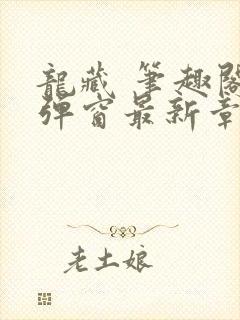 龍藏 筆趣閣
彈窗最新章
老土娘